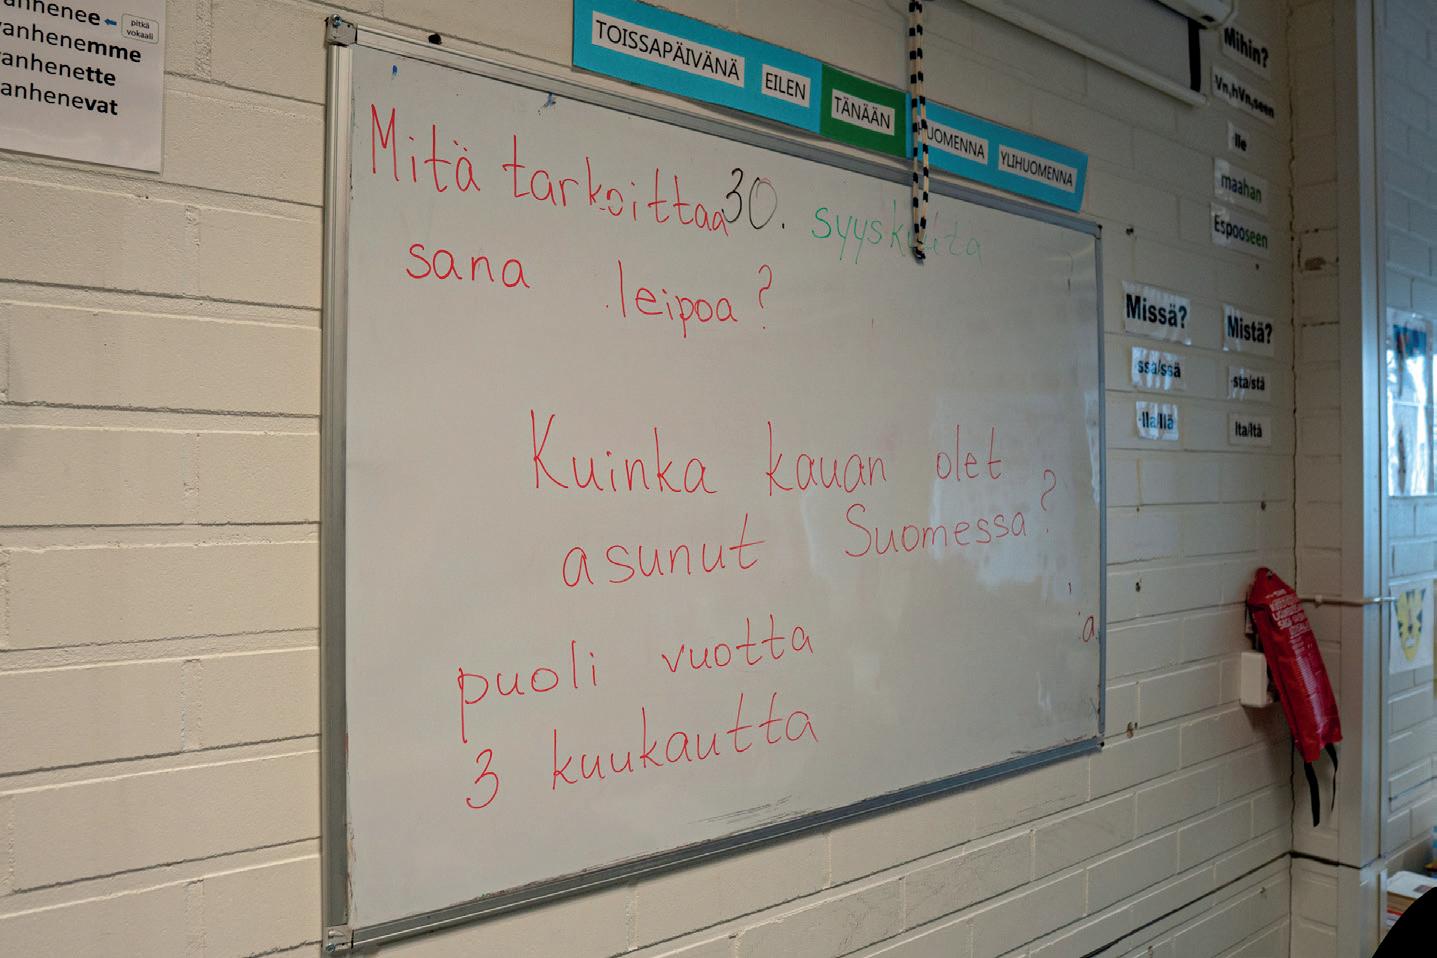 anhenee
pitkä
vokaali
vanhenemme
vanhenette
anhenevat
TOISSAPÄIVÄNÄ EILEN TÄNÄÄN UOMENNA YLIHUOMENNA
Mitä tarkoittaa 30. syyskuuta
sana leipoa?
Kuinka kauan olet
asunut Suomessa?
a
puoli vuotta
3 kuukautta
Mihin?
Vn,hVn,seen
lle
maahan
Espooseen
Missä?
ssa/ssä
-lla/llä
Mistä?
-sta/stä
lta/ltä